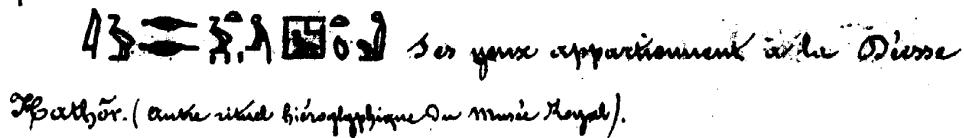 Ses yeux appartiennent à la Déesse
Hathôr. (Autre rituel hiéroglyphique du Musée Royal).